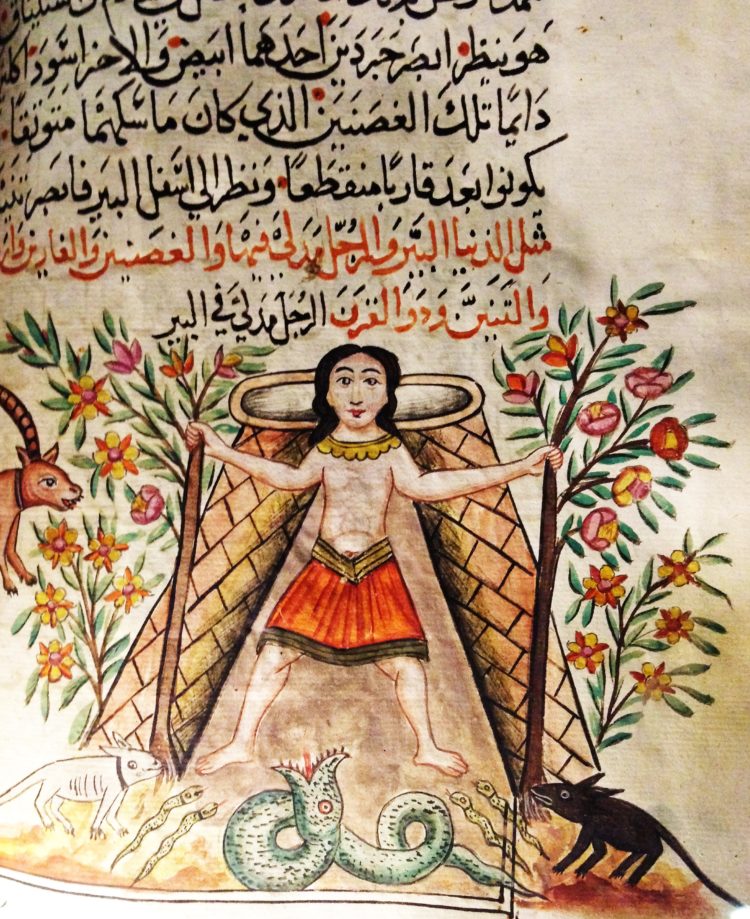 هو ينظر ابصر جردين احدهما ابيض والاخر اسود
دايمًا تلك الغصنين الذي كان ماسكهما متوثقًا
يكونوا بعد قاربا منقطعًا ونظر الي اسفل البير فابصر
مثل الدنيا البير والرجل مدلي فيها والغصنين والفارين
والتنين ودو القرن الرجل مدلي في البير